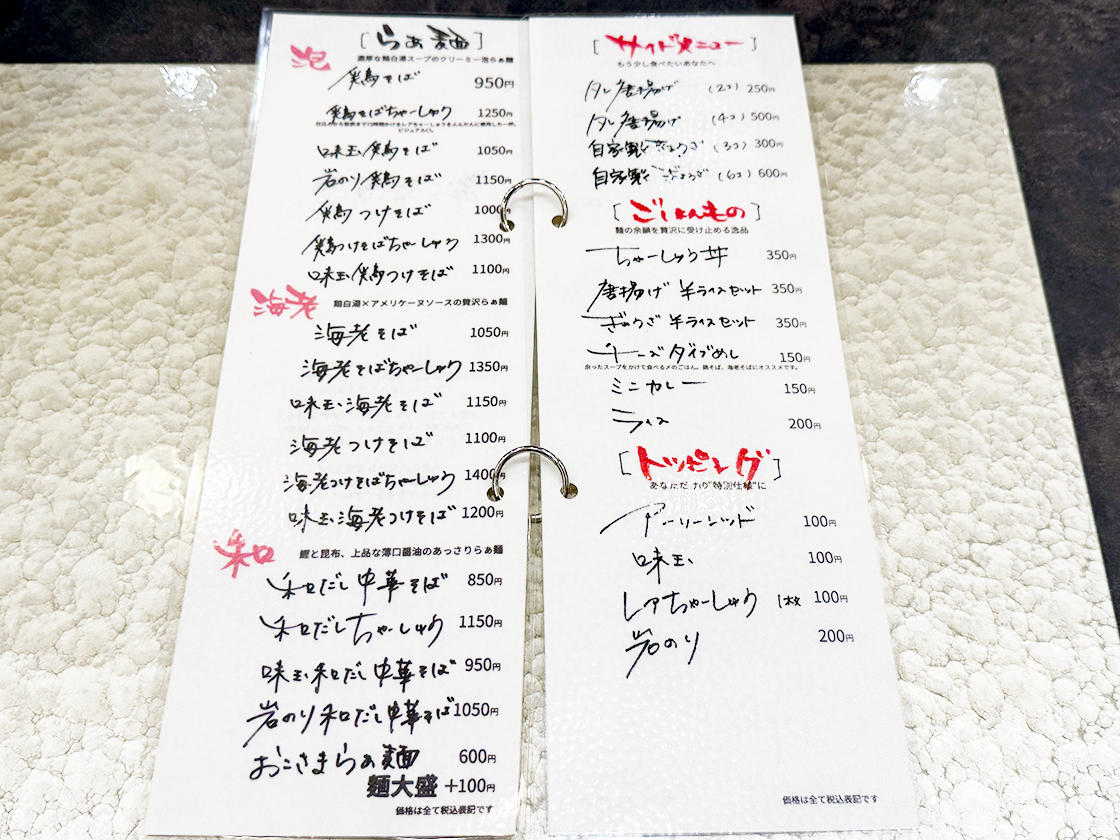 [らぁ麺]
泡
濃厚な鶏白湯スープのクリーミー泡らぁ麺
鶏そば 950円
鶏そばちゃーしゅう 1250円
ビジュアル◎。
味玉鶏そば 1050円
岩のり鶏そば 1150円
鶏つけそば 1000円
鶏つけそばちゃーしゅう 1300円
味玉鶏つけそば 1100円
海老
鶏白湯×アメリケーヌソースの贅沢らぁ麺
海老そば 1050円
海老そばちゃーしゅう 1350円
味玉海老そば 1150円
海老つけそば 1100円
海老つけそばちゃーしゅう 1400円
味玉海老つけそば 1200円
和
鰹と昆布、上品な薄口醤油のあっさりらぁ麺
和だし中華そば 850円
和だしちゃーしゅう 1150円
味玉和だし中華そば 950円
岩のり和だし中華そば 1050円
おこさまらぁ麺 600円
麺大盛 +100円
価格は全て税込表記です
[サイドメニュー]
もう少し食べたいあなたへ
タレ唐揚げ (2コ) 250円
タレ唐揚げ (4コ) 500円
自家製ぎょうざ (3コ) 300円
自家製ぎょうざ (6コ) 600円
[ごはんもの]
麺の余韻を贅沢に受け止める逸品
ちゃーしゅう丼 350円
唐揚げ半ライスセット 350円
ぎょうざ半ライスセット 350円
チーズダイブめし 150円
余ったスープをかけて食べる〆のごはん。鶏そば、海老そばにオススメです。
ミニカレー 150円
ライス 200円
[トッピング]
あなただけの"特別仕様"に
アーリーレッド 100円
味玉 100円
レアちゃーしゅう 1枚 100円
岩のり 200円
価格は全て税込表記です